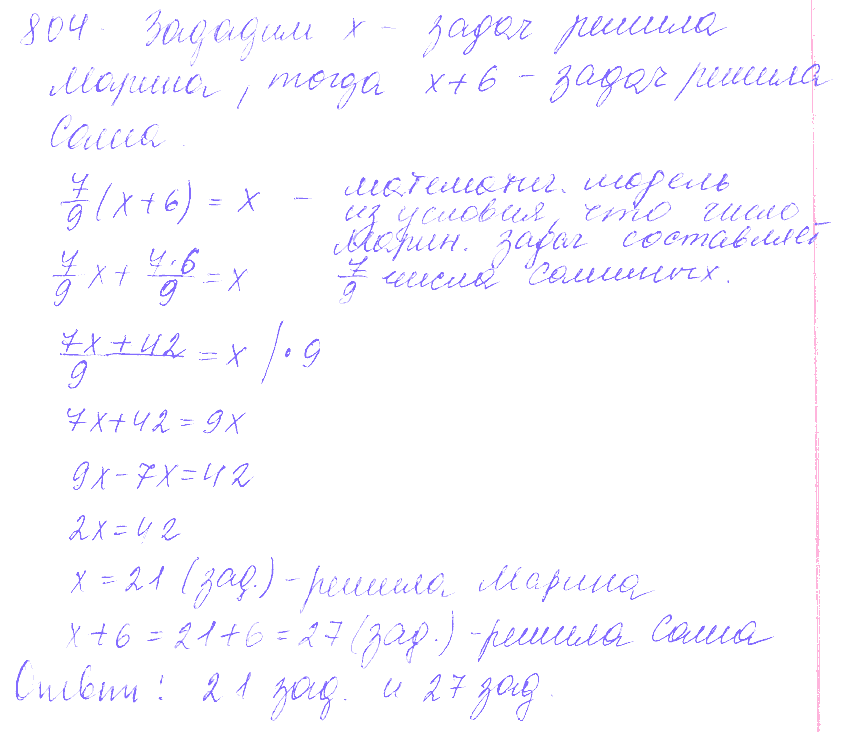 804. Зададим x – задач решила
Марина, тогда x+6 – задач решила
Саша.
7/9 (x+6) = x – математич. модель
из условия, что число
Марин. задач составляет
7/9 числа Сашиных.
7/9 x + 7·6/9 = x
7x+42/9 = x /·9
7x+42=9x
9x-7x=42
2x=42
x=21 (зад.) -решила Марина
x+6=21+6=27(зад.) -решила Саша
Ответ: 21 зад. и 27 зад.